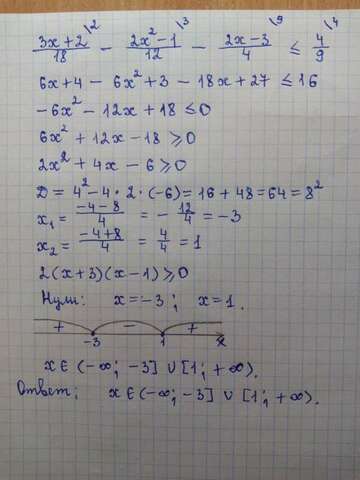 (3x+2)/18 \2 - (2x²-1)/12 \3 - (2x-3)/4 \9 ≤ 4/9 \4
6x+4 - 6x²+3 - 18x+27 ≤ 16
-6x² - 12x + 18 ≤ 0
6x² + 12x - 18 ≥ 0
2x² + 4x - 6 ≥ 0
D = 4² - 4 · 2 · (-6) = 16 + 48 = 64 = 8²
x₁ = (-4-8)/4 = - 12/4 = -3
x₂ = (-4+8)/4 = 4/4 = 1
2(x+3)(x-1) ≥ 0
Нули: x = -3 ; x = 1.
+ - +
-3 1 x
x ∈ (-∞; -3] ∪ [1; +∞).
Ответ: x ∈ (-∞; -3] ∪ [1; +∞).